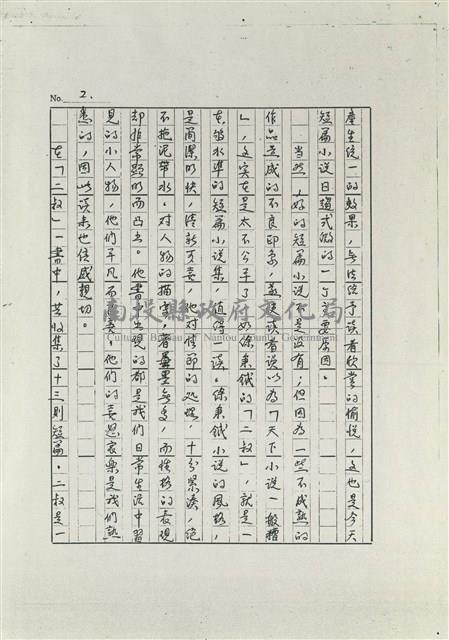 No. 2.
產生統一的效果，無法給予讀者欣賞的愉悅，這也是今天
短篇小說日趨式微的一個主要原因。
當然，好的短篇小說不是沒有，但因為一些不成熟的
作品造成的不良印象，致使讀者誤以為「天下小說一般糟
」，這實在是太不公平了。如徐秉鉞的「二叔」，就是一
本夠水準的短篇小說集，值得一讀。徐秉鉞小說的風格，
是簡潔明快，清新可喜，他對情節的處理，十分緊湊，絕
不拖泥帶水。對人物的描寫，著墨無多，而性格的表現
却非常鮮明而凸出。他書中出現的都是我們日常生活中習
見的小人物，他們平凡而善良，他們的喜怒哀樂是我們熟
悉的，因此讀來也倍感親切。
在「二叔」一書中，共收集了十三則短篇。二叔是一
南投縣政府文化局
Cultural Affairs Bureau Nantou County Government